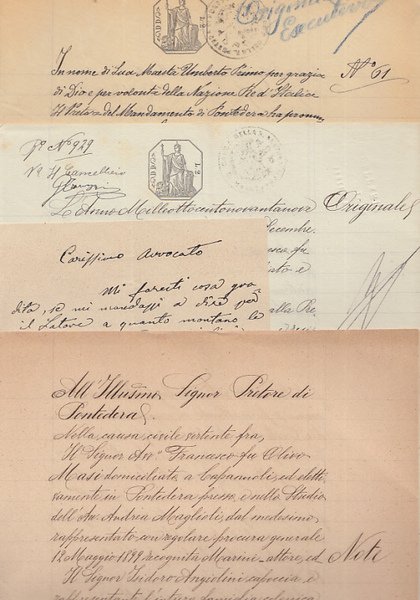 Originale
Esecutivo
L.2
In nome di Sua Maestà Umberto Primo per grazia
di Dio e per volontà della Nazione Re d'Italia
Il Pretore del Mandamento di Pontedera ha pronun
N° 61
P° N° 929
Il Cancelliere
L.2
L'Anno Milleottocentonovantanove
Originale
Dicembre
fu
e
alla Pre
Carissimo Avvocato
Mi faresti cosa gra
dita, se mi mandassi a dire per
il Latore a quanto montano le
All'Illu͞mo Signor Pretore di
Pontedera.
Nella causa civile vertente fra,
Il Signor Avv. Francesco fu Olivo
Masi domiciliato a Capannoli, ed eletti-
vamente in Pontedera presso, e nello Studio
dell'Av. Andrea Maglioli, dal medesimo
rappresentato con regolare procura generale
12 Maggio 1899 recognita Marini - attore, ed
Note
Il Signor Isidoro Angiolini capoccia e
rappresentante l'intera famiglia colonica